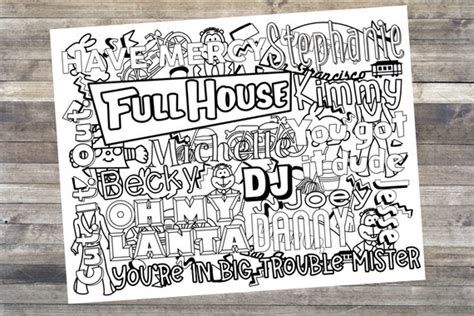 HAVE MERCY
Stephanie
San Francisco
FULL HOUSE
Kimmy
Cut.It.Out.
Michelle
You got
it dude
Becky
DJ
Joey
Jesse
OH MY
LANTA
DANNY
YOU'RE IN BIG TROUBLE MISTER